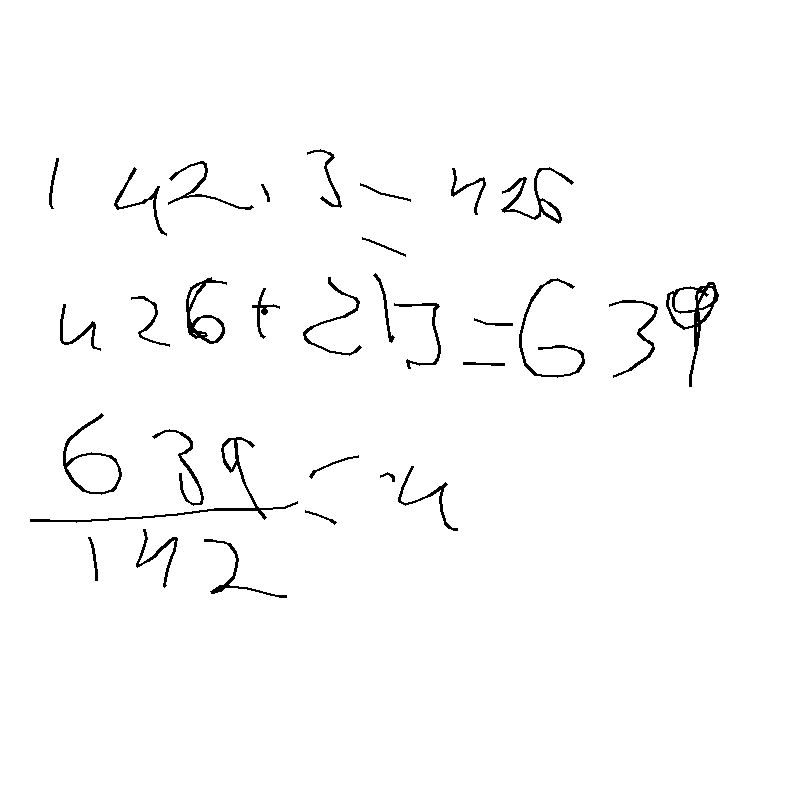 142 · 3 = 426
426 + 213 = 639
639/142 = 4